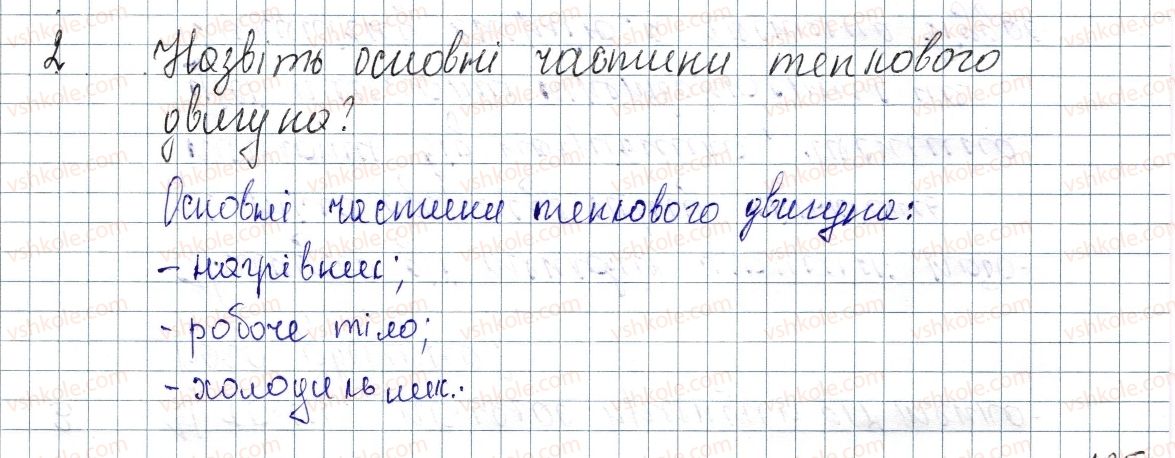 2 Назвіть основні частини теплового
двигуна?
Основні частини теплового двигуна:
- нагрівник;
- робоче тіло;
- холодильник.